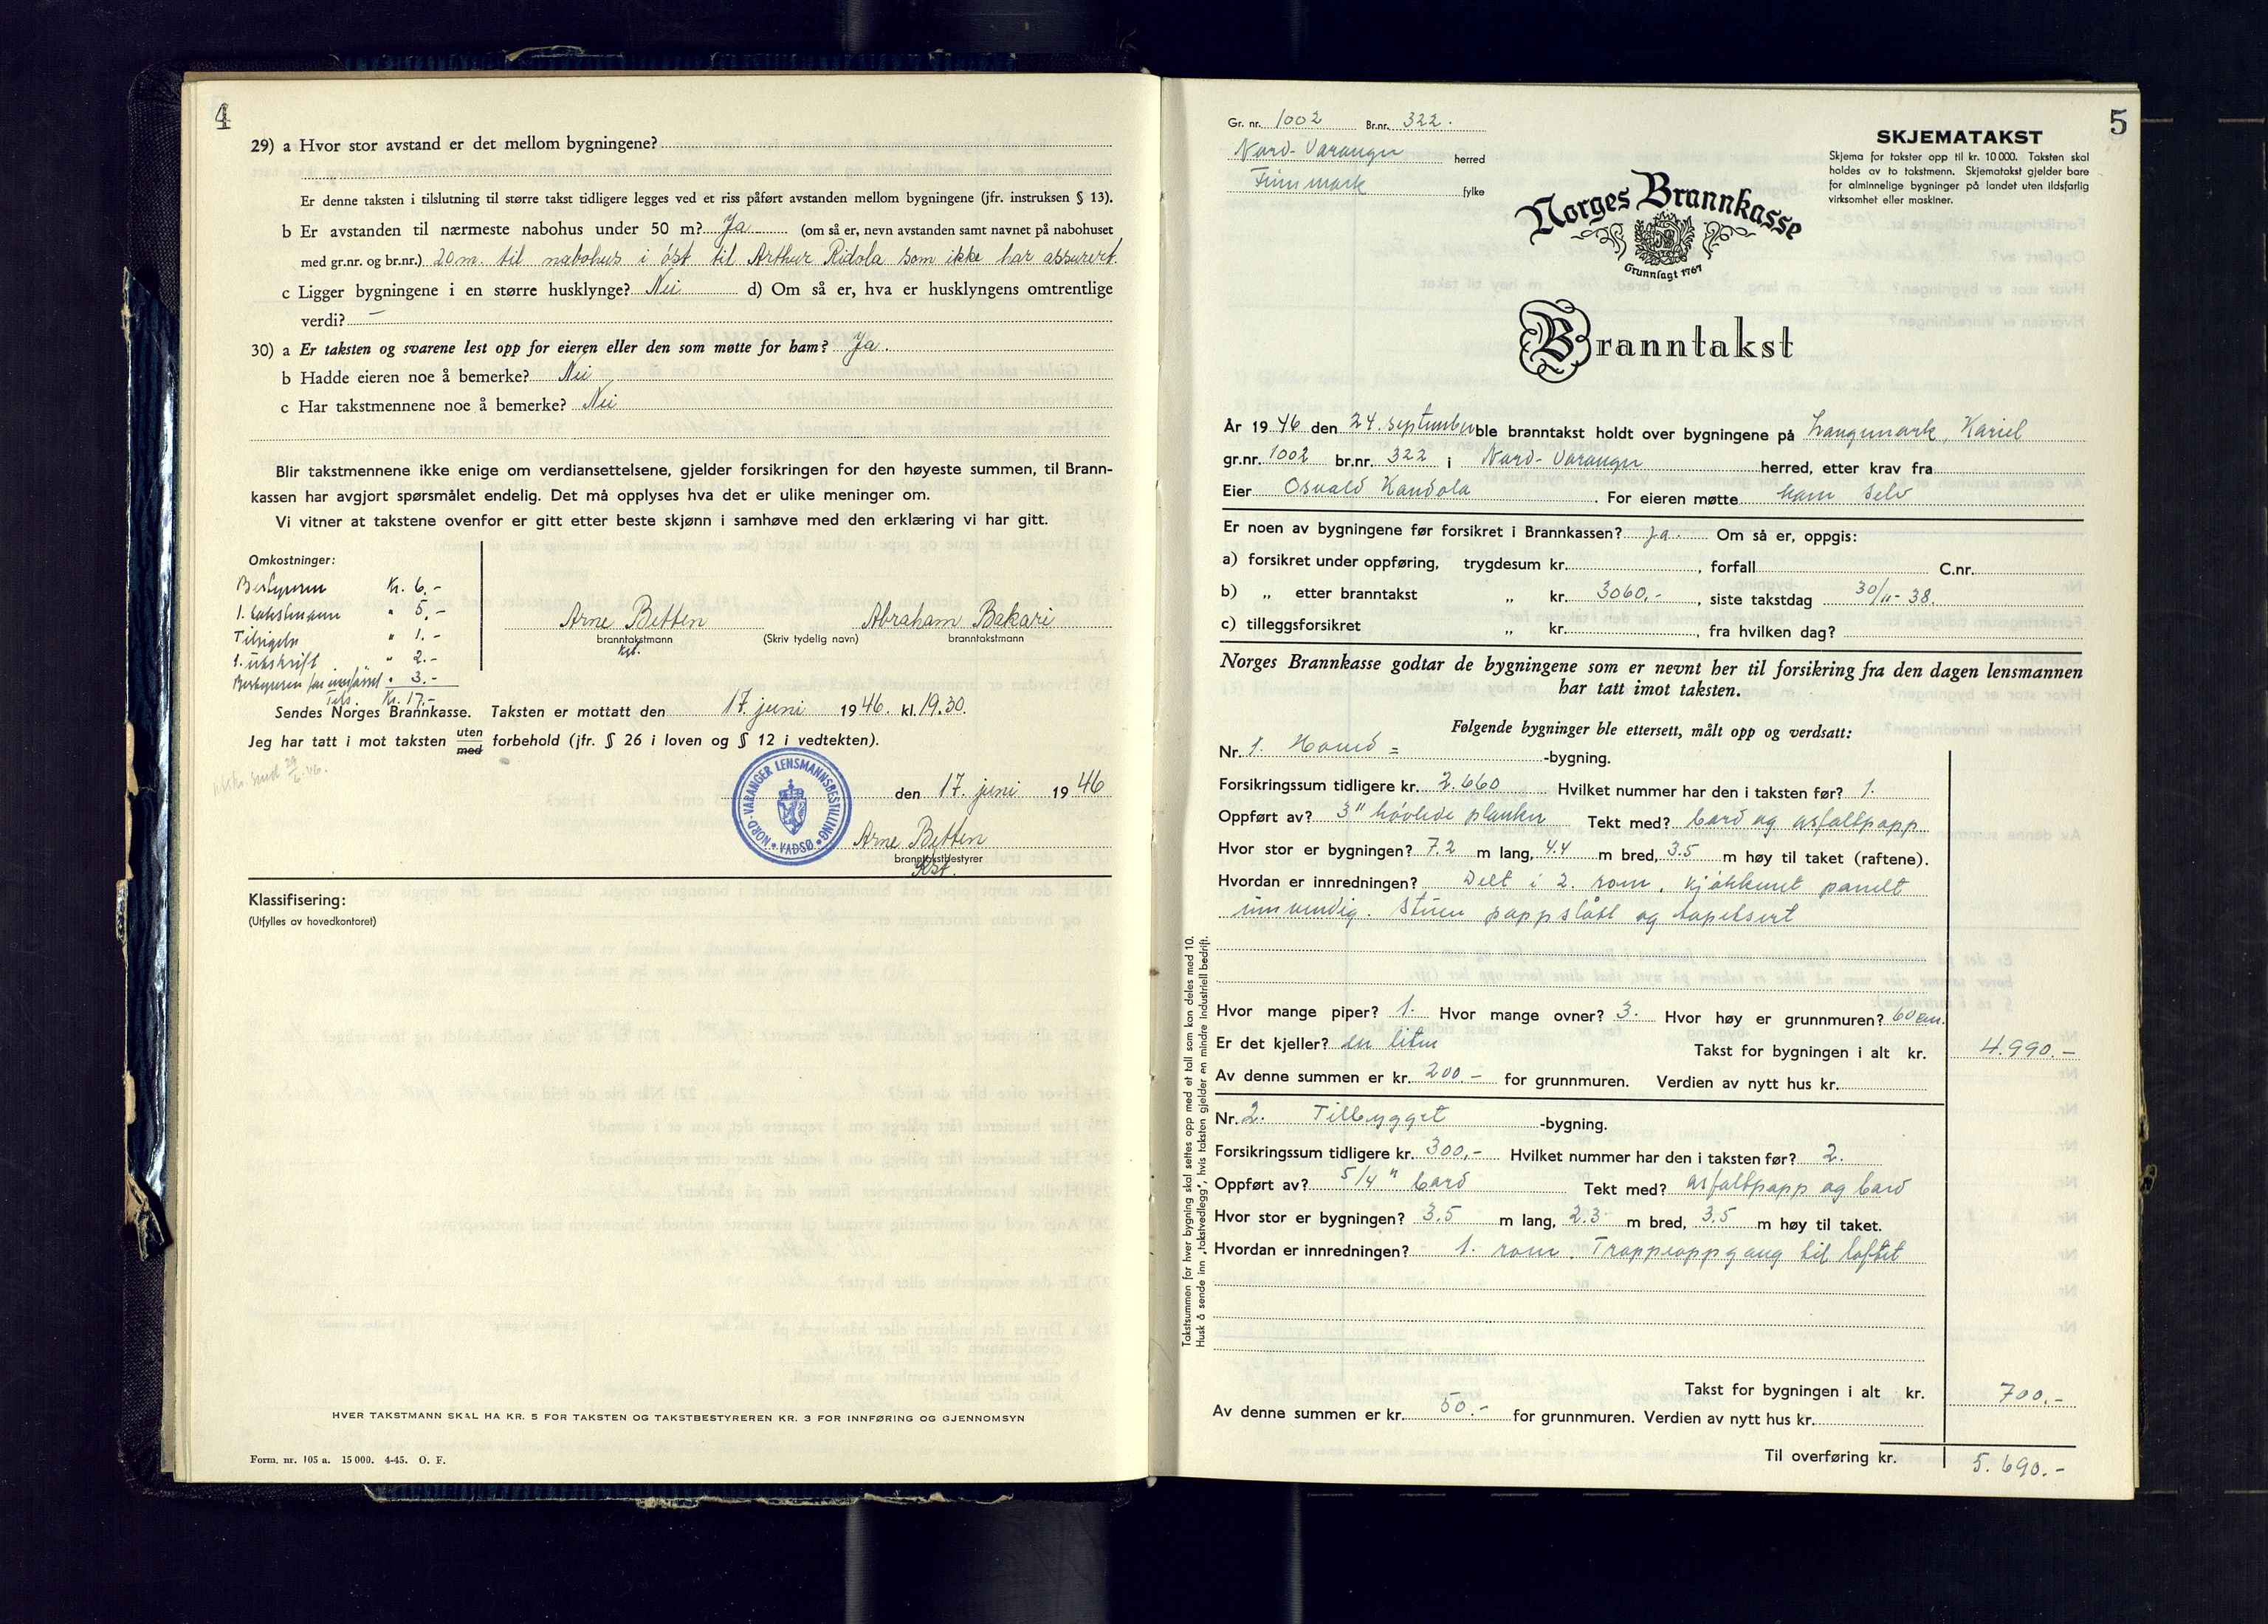 4
29) a Hvor stor avstand er det mellom bygningene?
Er denne taksten i tilslutning til større takst tidligere legges ved et riss påført avstanden mellom bygningene (jfr. instruksen § 13).
b Er avstanden til nærmeste nabohus under 50 m? Ja (om så er, nevn avstanden samt navnet på nabohuset
med gr.nr. og br.nr.) 20 m. til nabohus i øst til Arthur Ridola som ikke har assurert.
c Ligger bygningene i en større husklynge? Nei d) Om så er, hva er husklyngens omtrentlige
verdi? —
30) a Er taksten og svarene lest opp for eieren eller den som møtte for ham? Ja.
b Hadde eieren noe å bemerke? Nei
c Har takstmennene noe å bemerke? Nei
Blir takstmennene ikke enige om verdiansettelsene, gjelder forsikringen for den høyeste summen, til Brann-
kassen har avgjort spørsmålet endelig. Det må opplyses hva det er ulike meninger om.
Vi vitner at takstene ovenfor er gitt etter beste skjønn i samhøve med den erklæring vi har gitt.
Omkostninger:
Bestyreren Kr. 6.-
1. takstmann " 5,-
Tilsigels " 1.-
1. utskrift " 2.-
Bestyreren for innførsel " 3.-
Tils. Kr. 17,-
Arne Betten Abraham Bakari
branntakstmann (Skriv tydelig navn) branntakstmann
Kst.
Sendes Norges Brannkasse. Taksten er mottatt den 17. juni 1946. kl. 19.30.
Jeg har tatt i mot taksten uten med forbehold (jfr. § 26 i loven og § 12 i vedtekten).
NORD-VARANGER LENSMANNSBESTILLING
VADSØ
den 17. juni 1946
Arne Betten
branntakstbestyrer
Kst.
Klassifisering:
(Utfylles av hovedkontoret)
HVER TAKSTMANN SKAL HA KR. 5 FOR TAKSTEN OG TAKSTBESTYREREN KR. 3 FOR INNFØRING OG GJENNOMSYN
Form. nr. 105 a. 15 000. 4-45. O. F.
5
Gr. nr. 1002 Br.nr. 322.
Nord-Varanger herred
Finnmark fylke
SKJEMATAKST
Skjema for takster opp til kr. 10 000. Taksten skal
holdes av to takstmenn. Skjematakst gjelder bare
for alminnelige bygninger på landet uten ildsfarlig
virksomhet eller maskiner.
Norges Brannkasse
Grunnlagt 1767
Branntakst
År 1946 den 24. september ble branntakst holdt over bygningene på Langmark, Kariel
gr.nr. 1002 br.nr. 322 i Nord-Varanger herred, etter krav fra
Eier Osvald Kandola. For eieren møtte ham selv
Er noen av bygningene før forsikret i Brannkassen? ja. Om så er, oppgis:
a) forsikret under oppføring, trygdesum kr. , forfall C.nr.
b) „ etter branntakst „ kr. 3060.-, siste takstdag 30/11-38.
c) tilleggsforsikret „ kr. , fra hvilken dag?
Norges Brannkasse godtar de bygningene som er nevnt her til forsikring fra den dagen lensmannen
har tatt imot taksten.
Følgende bygninger ble ettersett, målt opp og verdsatt:
Nr. 1. Hoved= -bygning.
Forsikringssum tidligere kr. 2.660 Hvilket nummer har den i taksten før? 1.
Oppført av? 3" høvlede planker Tekt med? bord og asfaltpapp
Hvor stor er bygningen? 7.2 m lang, 4.4 m bred, 3.5 m høy til taket (raftene).
Hvordan er innredningen? Delt i 2. rom. kjøkkenet panelt
innvendig. Stuen pappslått og tapetsert
Hvor mange piper? 1. Hvor mange ovner? 3. Hvor høy er grunnmuren? 60 cm.
Er det kjeller? en liten Takst for bygningen i alt kr. 4.990.-
Av denne summen er kr. 200.- for grunnmuren. Verdien av nytt hus kr.
Nr. 2. Tilbygget -bygning.
Forsikringssum tidligere kr. 300,- Hvilket nummer har den i taksten før? 2.
Oppført av? 5/4" bord Tekt med? asfaltpapp og bord
Hvor stor er bygningen? 3.5 m lang, 2.3 m bred, 3.5 m høy til taket.
Hvordan er innredningen? 1. rom. Trappeoppgang til loftet
Takst for bygningen i alt kr. 700.-
Av denne summen er kr. 50.- for grunnmuren. Verdien av nytt hus kr.
Til overføring kr. 5.690.-
Takstsummen for hver bygning skal settes opp med et tall som kan deles med 10.
Husk å sende inn „takstvedlegg“, hvis taksten gjelder en mindre industriell bedrift.